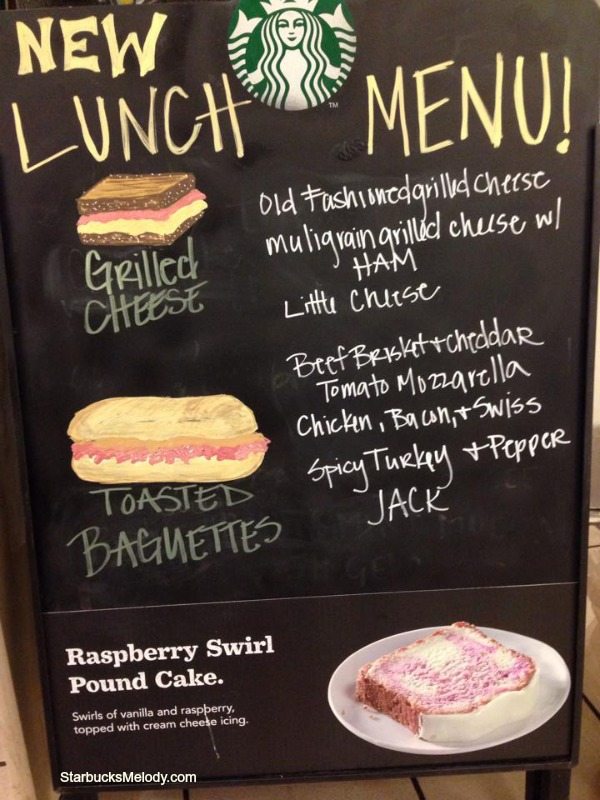 NEW
LUNCH MENU!
TM
Grilled
CHEESE
Old Fashioned grilled cheese
muligrain grilled cheese w/
HAM
Little Cheese
TOASTED
BAGUETTES
Beef Brisket + cheddar
Tomato Mozzarella
Chicken, Bacon, + Swiss
Spicy Turkey + Pepper
JACK
Raspberry Swirl
Pound Cake.
Swirls of vanilla and raspberry,
topped with cream cheese icing.
StarbucksMelody.com